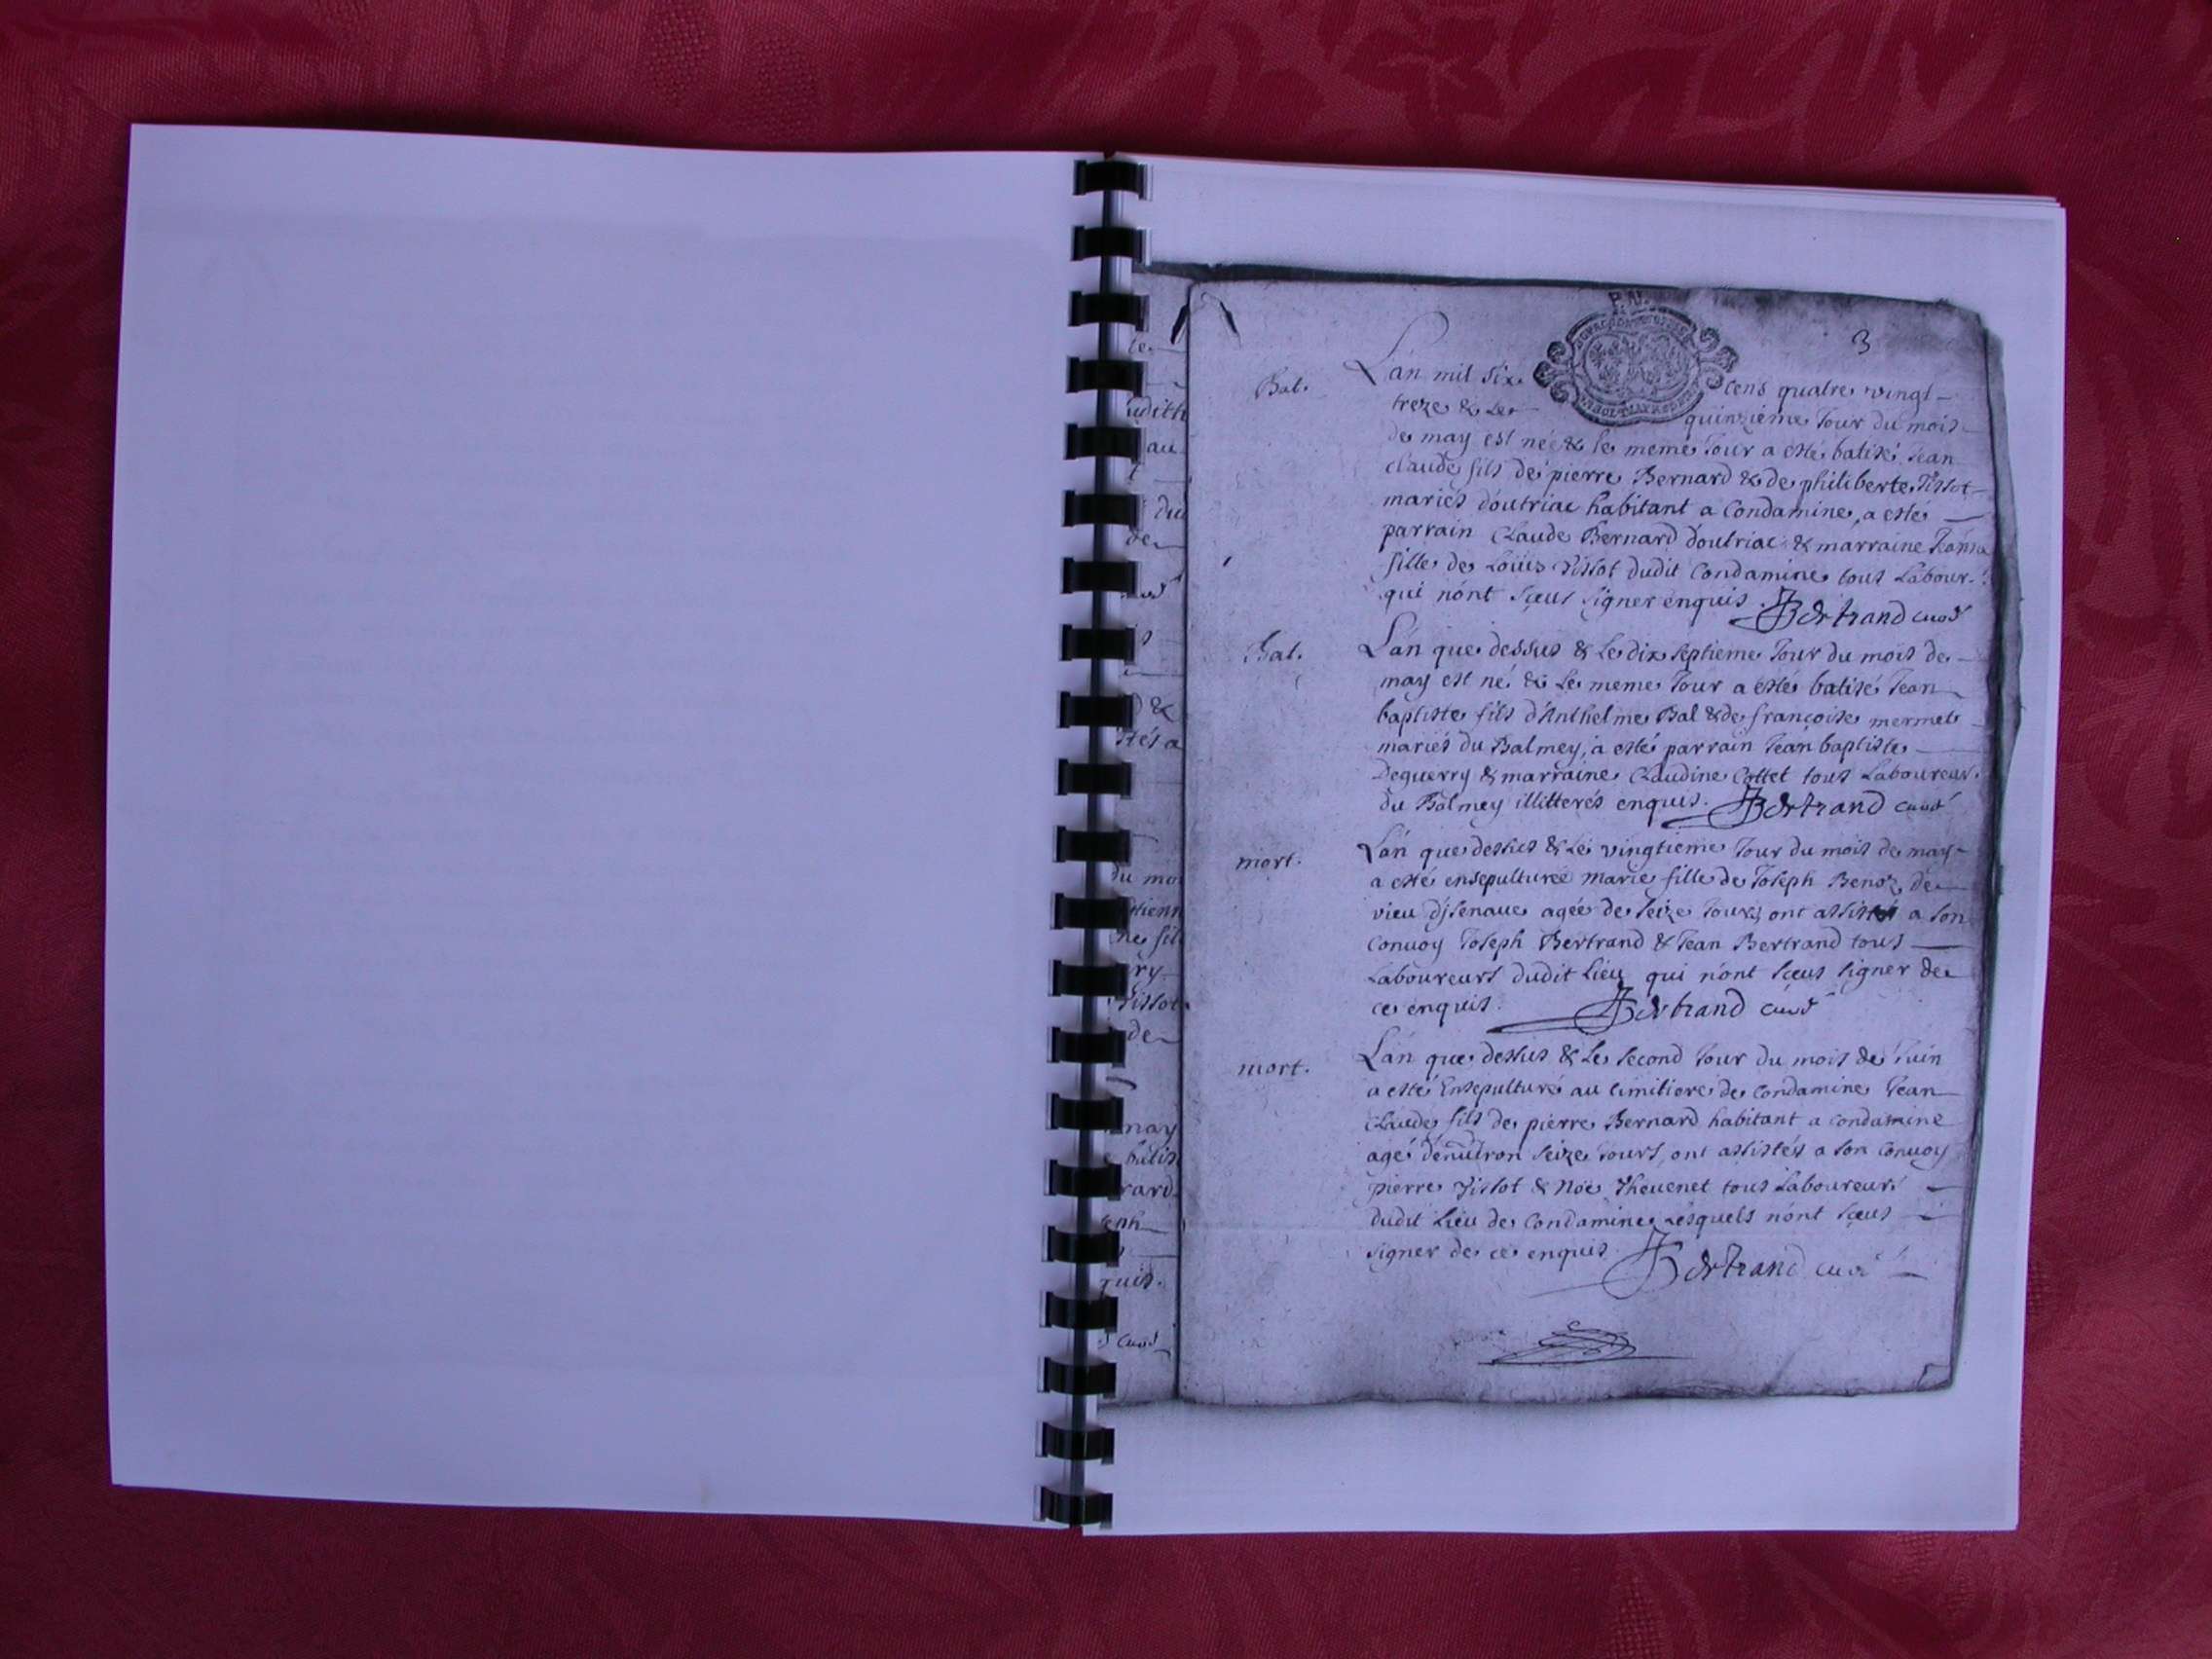 3
Bat.
L'an mil six cens quatre vingt
treze & le quinzieme Jour du mois
de may est né & le meme Jour a esté batisé Jean
claude fils de pierre Bernard & de philiberte Tissot
mariés d'outriac habitant a Condamine, a esté
parrain Claude Bernard d'outriac & marraine
fille de Loüis Tissot dudit Condamine tous Labour.
qui n'ont sçeus signer enquis. Bertrand curé
Bat.
L'an que dessus & Le dix septieme Jour du mois de
may est né & Le meme Jour a esté batisé Jean
baptiste fils d'Anthelme Bal & de françoise mermet
mariés du Balmey, a esté parrain Jean baptiste
Deguerry & marraine Claudine Cottet tous Laboureur.
du Balmey illitterés enquis. Bertrand curé
mort.
L'an que dessus & Le vingtieme Jour du mois de may
a esté ensepulturée marie fille de Joseph Benoz de
vieu d'jsenave agée de seize Jours, ont assistés a son
Convoy Joseph Bertrand & Jean Bertrand tous
Laboureurs dudit Lieu qui n'ont sçeus signer de
ce enquis. Bertrand curé
mort.
L'an que dessus & Le second Jour du mois de Juin
a esté Ensepulturé au cimitiere de Condamine Jean
Claude fils de pierre Bernard habitant a Condamine
agé d'enuiron seize Jours, ont assistés a son Convoy
pierre Tissot & Noé Thevenet tous Laboureurs
dudit Lieu de Condamine Lesquels n'ont sçeus
signer de ce enquis. Bertrand curé